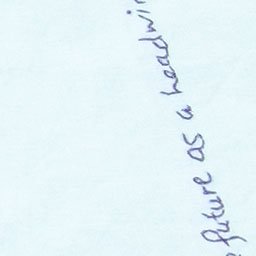 future as a headwin